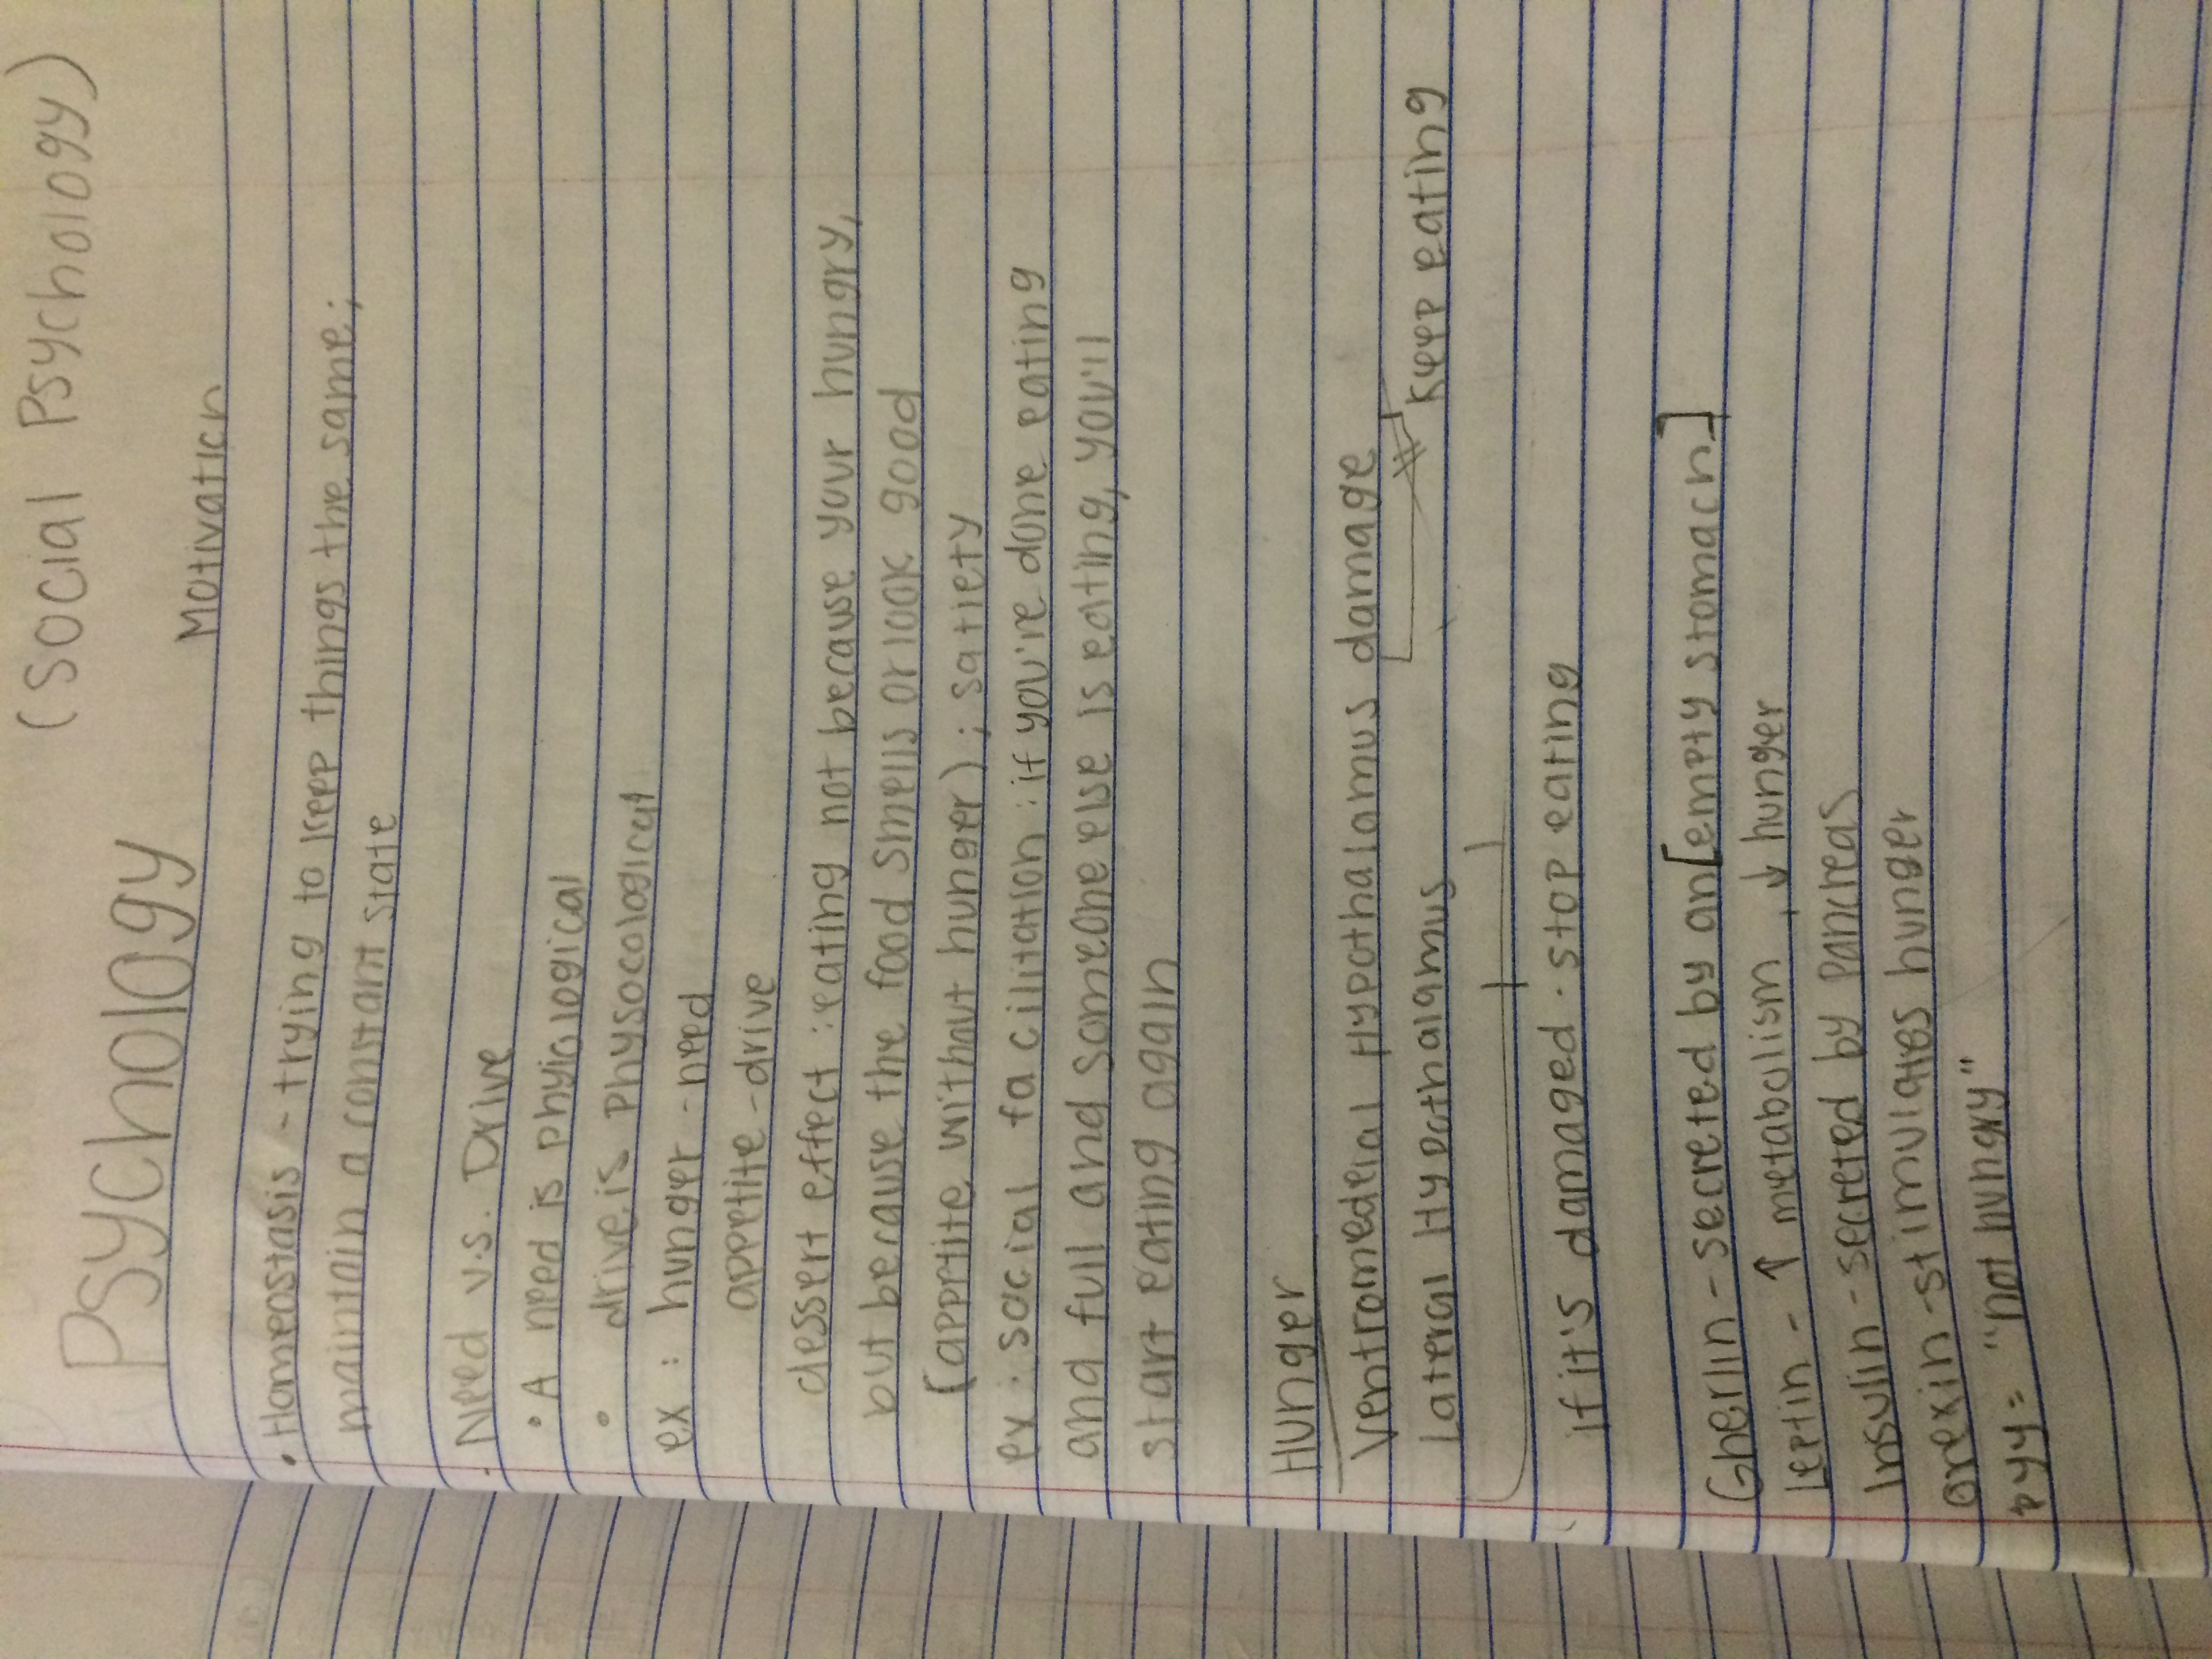 Psychology (Social Psychology)
Motivation
• Homeostasis - trying to keep things the same;
maintain a constant state
• Need v.s. Drive
• A need is phyiological
• drive is physocological
ex: hunger - need
appetite - drive
dessert effect: eating not because your hungry,
but because the food smells or look good
(appetite without hunger); satiety
ex: social facilitation: if you're done eating
and full and someone else is eating, you'll
start eating again
Hunger
Ventromedial Hypothalamus damage
Lateral Hypothalamus keep eating
if it's damaged. stop eating
Gherlin - secreted by an [empty stomach]
Leptin - ↑ metabolism, ↓ hunger
Insulin - secreted by Pancreas
orexin - stimulates hunger
pyy = "not hungry"